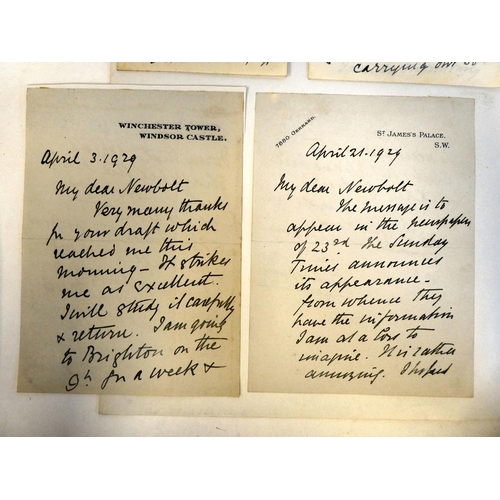 carrying out so
WINCHESTER TOWER,
WINDSOR CASTLE.
April 3. 1929
My dear Newbolt
Very many thanks
for your draft which
reached me this
morning – It strikes
me as excellent.
I will study it carefully
& return. I am going
to Brighton on the
9th for a week &
7690 GERRARD.
ST JAMES'S PALACE,
S.W.
April 21. 1929
My dear Newbolt
The message is to
appear in the newspapers
of 23rd The Sunday
Times announces
its appearance –
from whence they
have the information
I am at a loss to
imagine. It is rather
annoying. I hoped